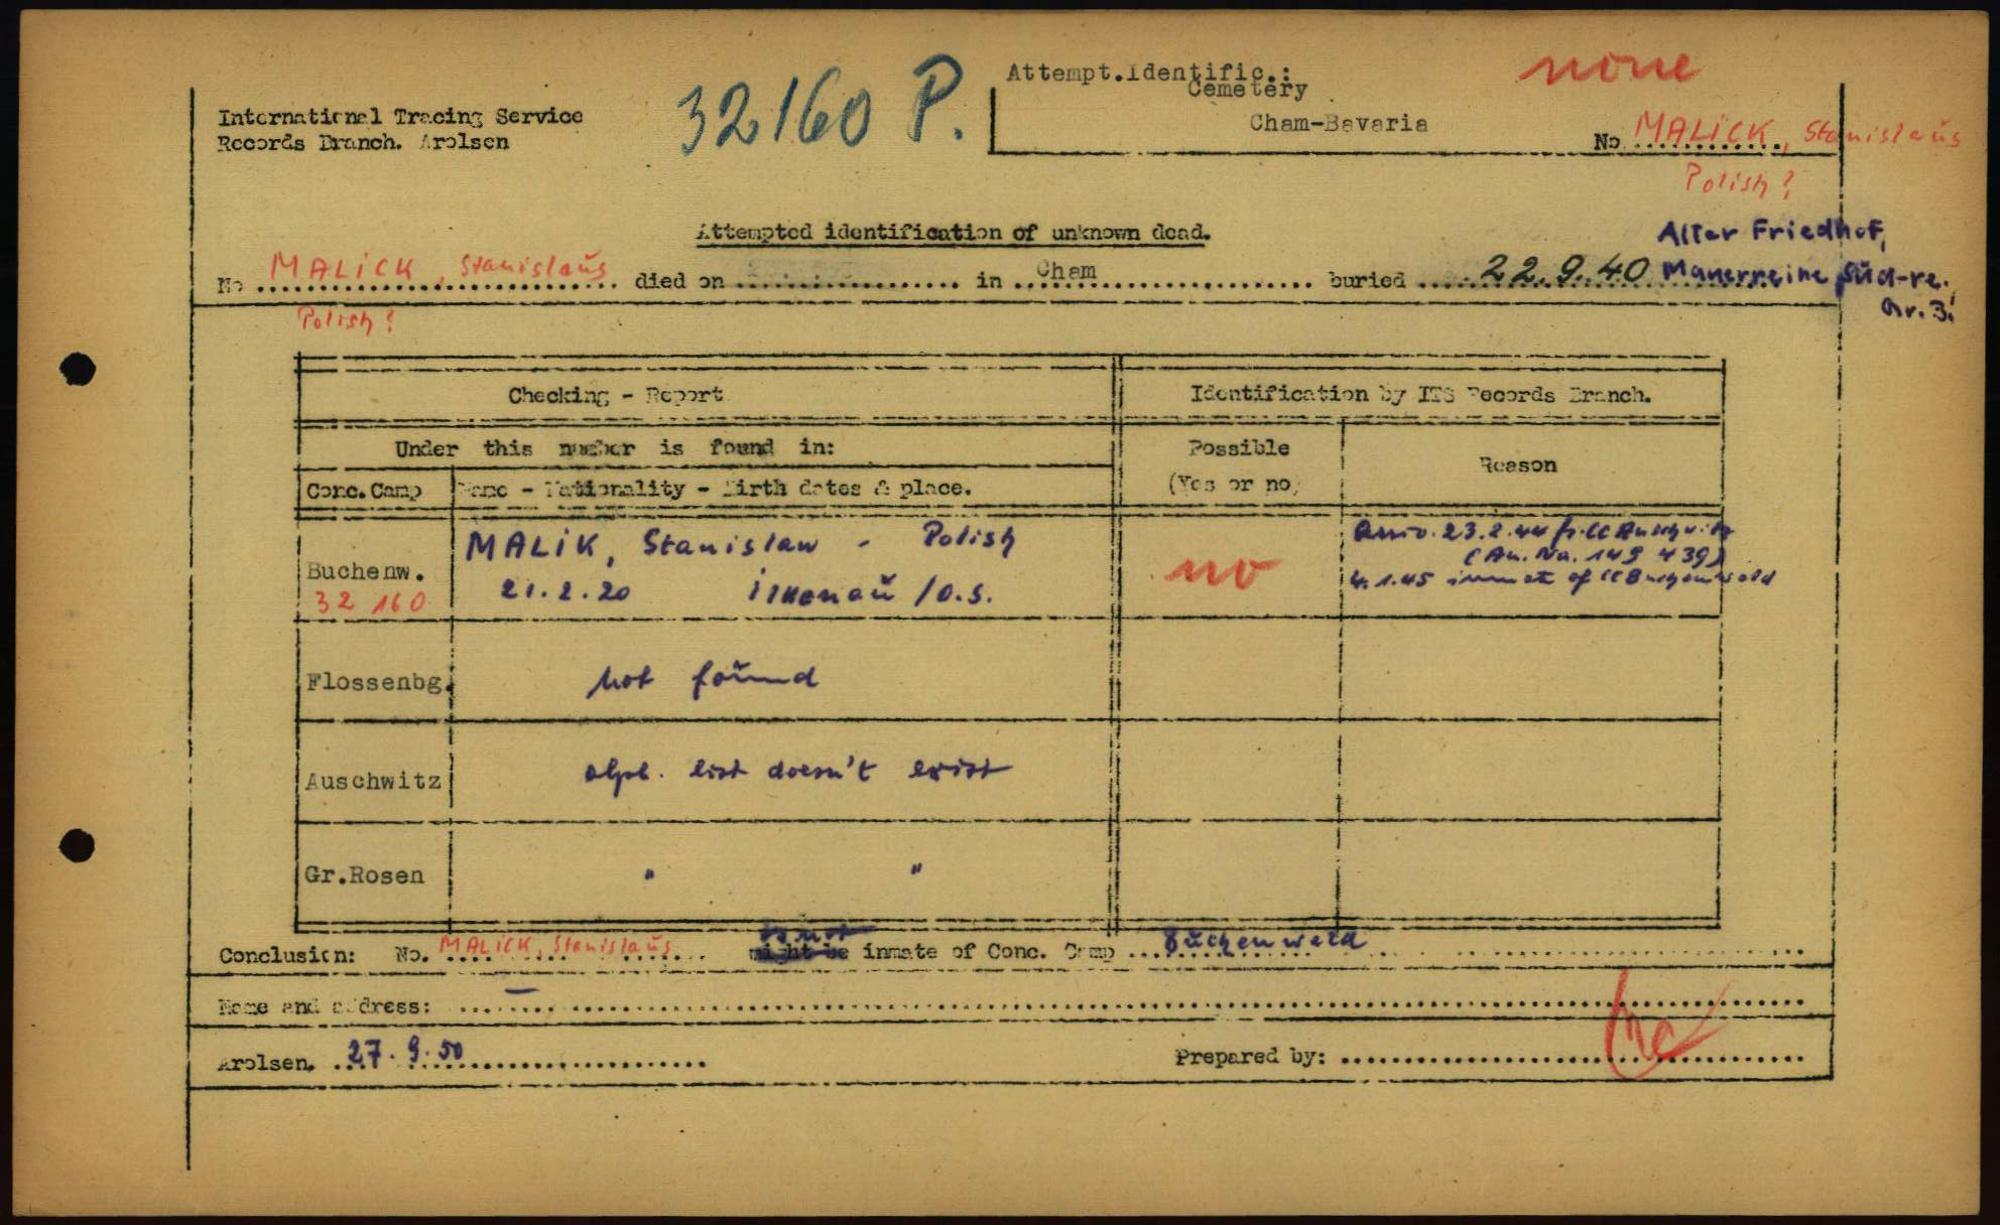 Attempt.Identific.:
none
International Tracing Service
Records Branch. Arolsen
32160 P.
Cemetery
Cham-Bavaria
No MALICK, Stanislaus
Polish?
Attempted identification of unknown dead.
Alter Friedhof,
No MALICK, Stanislaus died on .................. in Cham buried 22.9.40 Mauerreihe Süd-re.
Gr. 3.
Polish?
Checking - Report
Identification by ITS Records Branch.
Under this number is found in:
Possible
(Yes or no)
Reason
Conc.Camp
Name - Nationality - Birth dates & place.
Buchenw.
32 160
MALIK, Stanislaw - Polish
21.2.20 Ilkenau /O.S.
no
Arriv. 23.2.44 fr. CC Auschwitz
(Au. No. 149 439)
4.1.45 inmate of CC Buchenwald
Flossenbg.
not found
Auschwitz
alph. list doesn't exist
Gr.Rosen
" "
Conclusion: No. MALICK, Stanislaus might be is not inmate of Conc. Camp Buchenwald
Name and address: —
Arolsen, 27.9.50
Prepared by: